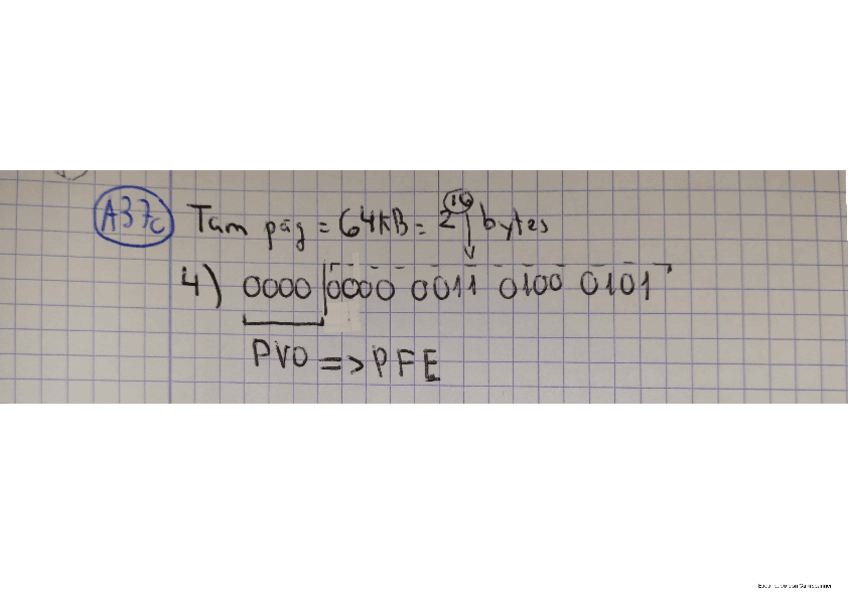 A37c Tam pág = 64KB = 2^16 bytes
4) 0000 0000 0011 0100 0101
PV0 => PFE